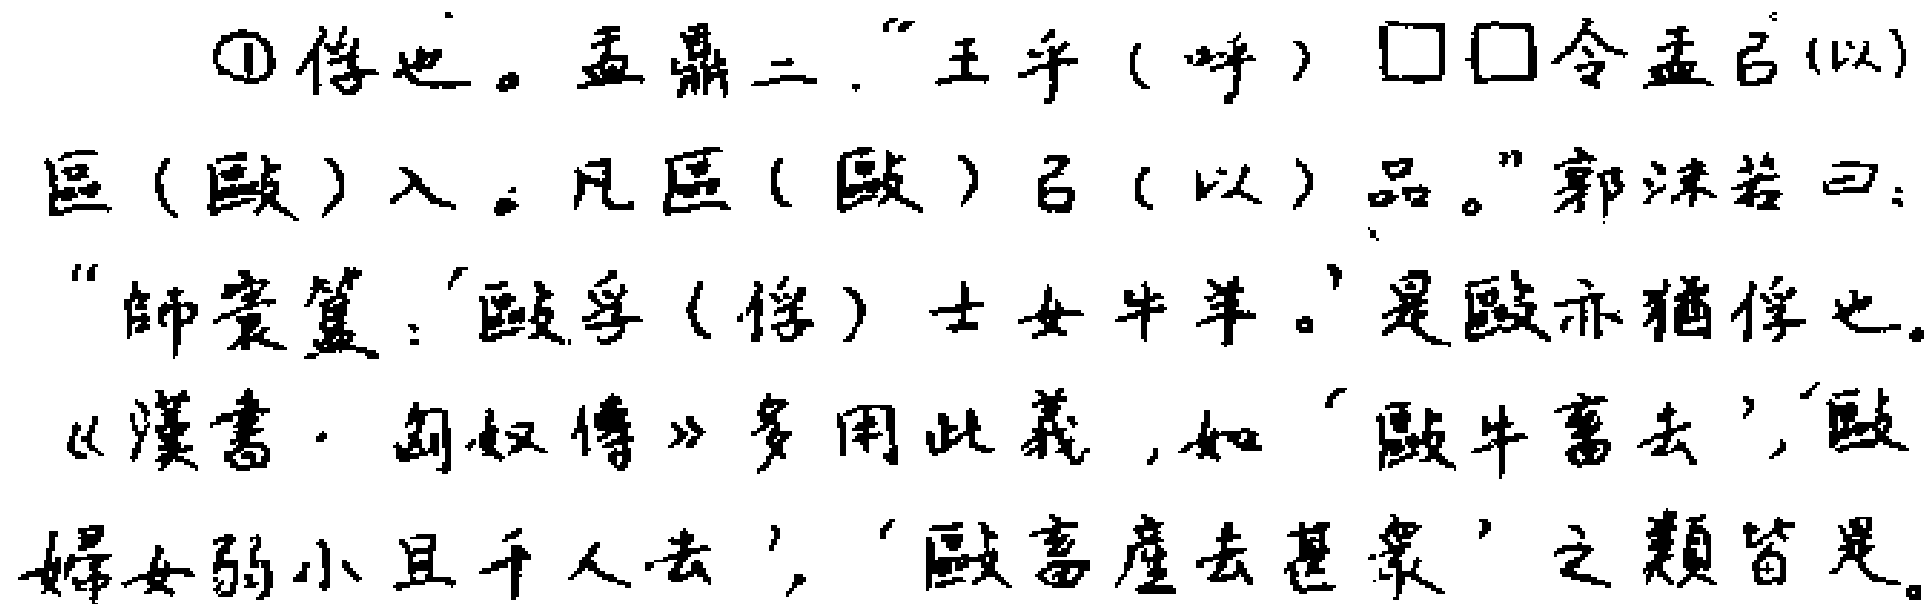 ①俘也。盂鼎二："王乎(呼)□□令盂㠯(以)
區(毆)入。凡區(毆)㠯(以)品。"郭沫若曰:
"師㝨簋:'毆孚(俘)士女牛羊。'是毆亦猶俘也。
《漢書·匈奴傳》多用此義,如'毆牛畜去','毆
婦女弱小且千人去','毆畜產去甚衆'之類皆是。